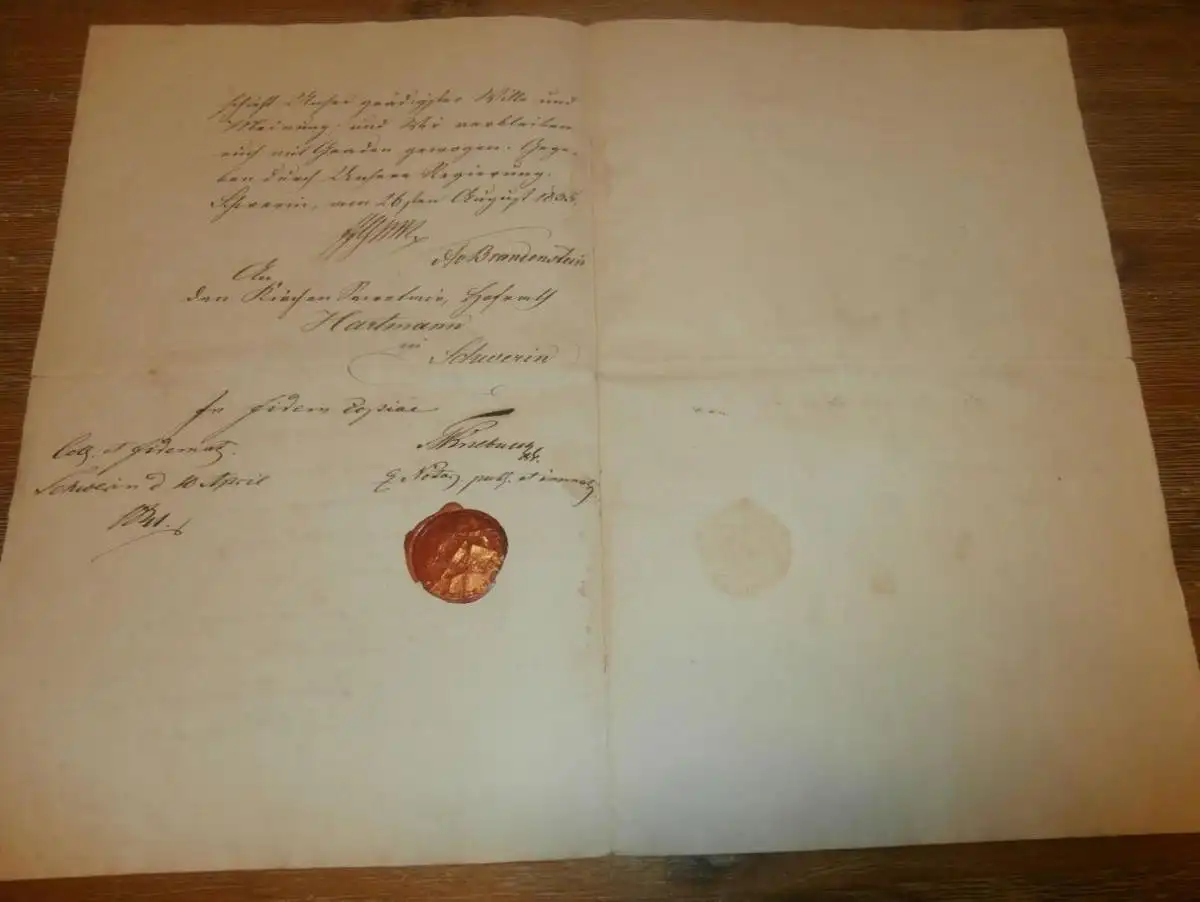 schieht Unser gnädigster Wille und
Meinung und Wir verbleiben
euch mit Gnaden gewogen. Gege-
ben durch Unsere Regierung.
Schwerin, am 26sten August 1835.
Brandenstein
An
den Kirchen Secretair, Hofrath
Hartmann
in
Schwerin
In fidem copiae
Coll. et fidemat.
Schwerin d 10 April
1841.
Notar. publ. et immatr.